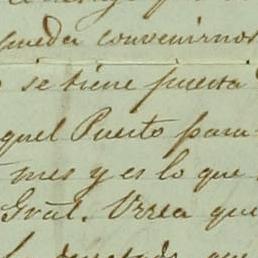 pueda convenirnos
se tiene puesta
aquel Puerto para
mes y es lo que
Gral. Urrea que